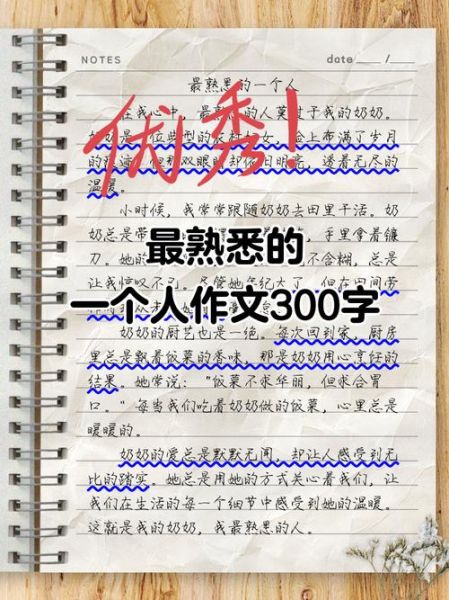 NOTES date ____ /____
最熟悉的一个人
我心中，最熟悉的人莫过于我的奶奶。
是一位典型的农村妇女，脸上布满了岁月
的痕迹，但那双眼睛却依旧明亮，透着无尽的
温暖。
优秀！
小时候，我常常跟随奶奶去田里干活。奶
奶总是带 手里拿着镰
刀。她的 不含糊，总是
让我惊叹不已。尽管她年纪大了，但在田间劳
最熟悉的
一个人作文300字
奶奶的厨艺也是一绝。每次回到家，厨房
里总是飘着饭菜的香味，那是奶奶用心烹饪的
结果。她常说："饭菜不求华丽，但求合胃
口。"每当我们吃着奶奶做的饭菜，心里总是
暖暖的。
奶奶的爱总是默默无闻，却让人感受到无
比的踏实。她总是用她的方式关心着我们，让
我们在生活的每一个细节中感受到她的温暖。
这就是我的奶奶，我最熟悉的人。